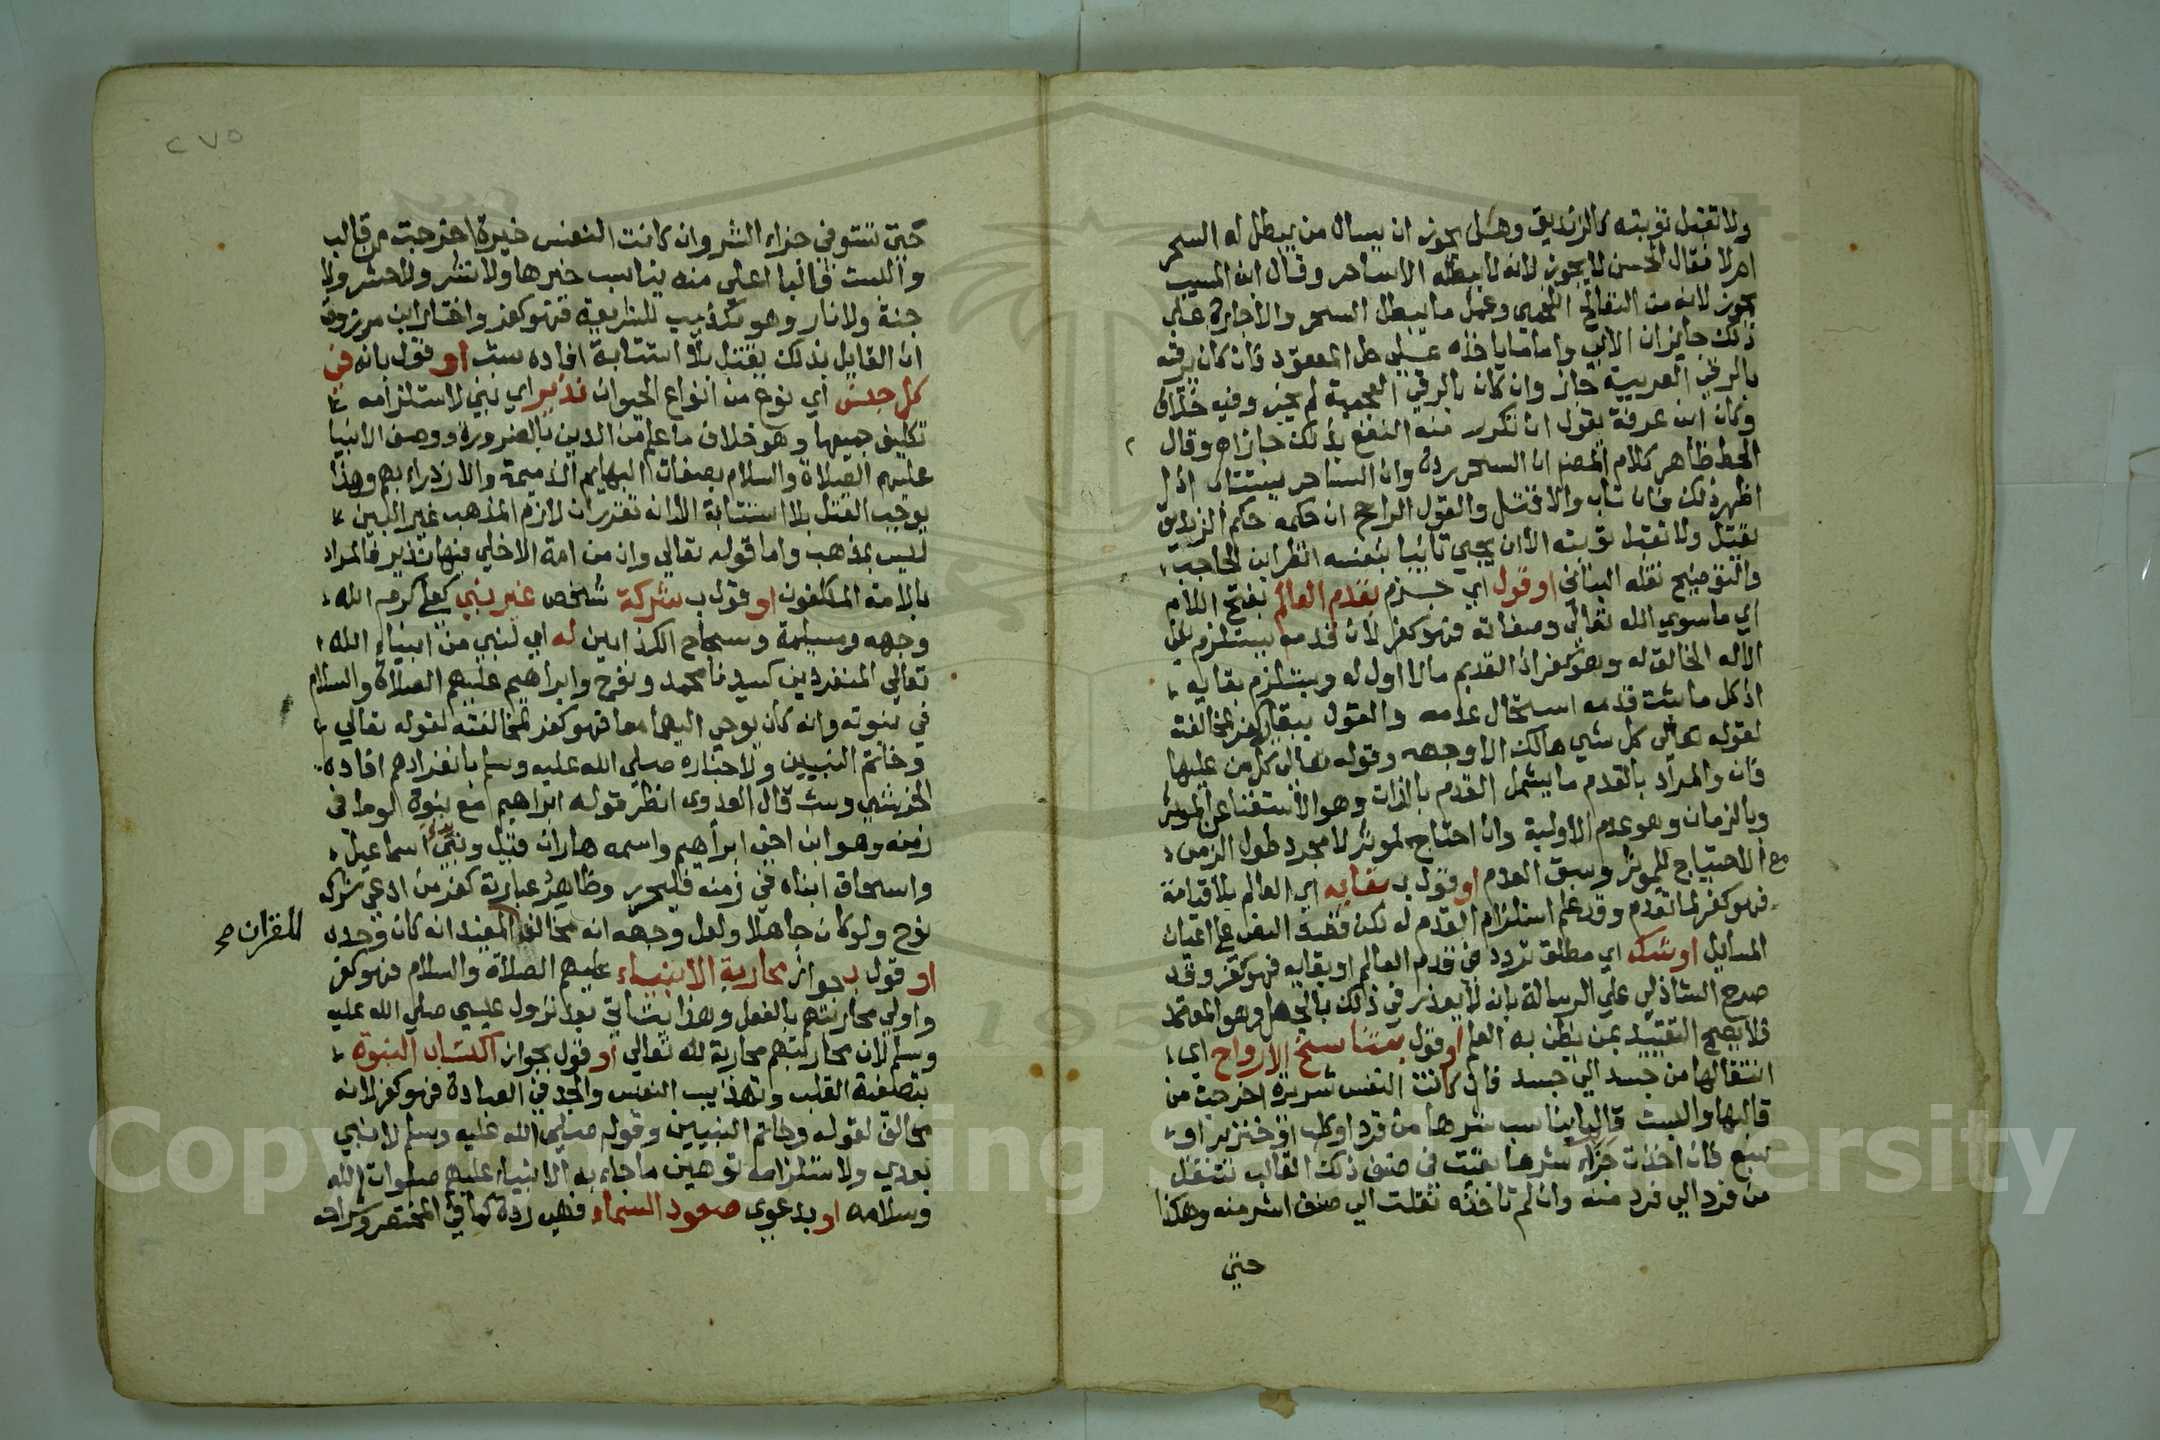 ولا تقبل توبته كالزنديق وهل يجوز ان يسال من يبطل له السحر
ام لا فقال الحسن لا يجوز لانه لا يبطله الا ساحر وقال ابن المسيب
يجوز لانه من التعالج وعمل ما يبطل السحر والاجارة على
ذلك جايزان الابي واما ما ياخذه على حل المعقود فان كان يرقيه
بالرقي العربية جاز وان كان بالرقي العجمية لم يجز وفيه خلاف
وكان ابن عرفة يقول ان تكرر منه النفع بذلك جاز اه وقال
الحط ظاهر كلام المصنف ان السحر ردة وان الساحر يستتاب اذا
اظهر ذلك فان تاب والا قتل والقول الراجح ان حكمه حكم الزنديق
يقتل ولا تقبل توبته الا ان يجيي تائبا بنفسه انظر ابن الحاجب
والتوضيح نقله البناني او قول اي جزم بقدم العالم بفتح اللام
اي ما سوي الله تعالى وصفاته فهو كفر لان قدمه يستلزم نفي
الاله الخالق له وهو كفر اذ القديم ما لا اول له ويستلزم بقايه
اذ كل ما ثبت قدمه استحال عدمه والقول ببقايه كفر لمخالفته
لقوله تعالى كل شي هالك الا وجهه وقوله تعالى كل من عليها
فان والمراد بالقدم ما يشمل القدم بالذات وهو الاستغنا عن المؤثر
وبالزمان وهو عدم الاولية وان احتاج لموثر لا مجرد طول الزمن
مع الاحتياج للموثر وسبق العدم او قول ب بقايه اي العالم بلا قيامة
فهو كفر لما تقدم وقد علم استلزام القدم له لكن قصد النص على اعيان
المسايل او شك اي مطلق تردد في قدم العالم او بقايه فهو كفر وقد
صرح الشاذلي علي الرسالة بانه لا يعذر في ذلك بالجهل وهو المعتمد
فلا يصح التقييد بمن يظن به العلم او قول بتناسخ الارواح اي
انتقالها من جسد الي جسد فان كانت النفس شريرة اخرجت من
قالبها والبست قالبا يناسب شرها من قرد او كلب او خنزير او
سبع فان اخذت جزاء شرها بقيت في صنف ذلك القالب تنتقل
من فرد الي فرد منه وان لم تاخذه نقلت الي صنف اشر منه وهكذا
حتي
٢٧٥
حتي تستوفي جزاء الشر وان كانت النفس خيرة اخرجت من قالب
والبست قالبا اعلي منه يناسب خيرها ولا نشر ولا حشر ولا
جنة ولا نار وهو تكذيب للشريعة فهو كفر واختار ابن مرزوق
ان القايل بذلك يقتل بلا استتابة افاده شب او قول بانه في
كل جنس اي نوع من انواع الحيوان نذير اي نبي لاستلزامه
تكليف جميعها وهو خلاف ما علم من الدين بالضرورة ووصف الانبيا
عليهم الصلاة والسلام بصفات البهايم الذميمة والازدراء بهم وهذا
يوجب القتل بلا استتابة الا انه تقرر ان لازم المذهب غير البين
ليس بمذهب واما قوله تعالي وان من امة الا خلي فيها نذير فالمراد
بالامة المكلفون او قول ب شركة شخص غير نبي كعلي كرم الله
وجهه ومسيلمة وسجاح الكذابين له اي لنبي من انبياء الله
تعالي المنفردين كسيدنا محمد ونوح وابراهيم عليهم الصلاة والسلام
في نبوته وانه كان يوحي اليهما معا فهو كفر لمخالفته لقوله تعالي
وخاتم النبيين ولاخباره صلي الله عليه وسلم بانفرادهم افاده
الخرشي وشب قال العدوي انظر قوله ابراهيم مع نبوة لوط في
زمنه وهو ابن اخي ابراهيم واسمه هاران قبل ونبئ اسماعيل
واسحاق ابناه في زمنه فليحرر وظاهر عبارته كفر من ادعي شركه
نوح ولو كان جاهلا ولعل وجهه انه مخالف المفيد انه كان وحده
للقران صح
او قول ب جواز محاربة الانبياء عليهم الصلاة والسلام فهو كفر
واولي محاربتهم بالفعل وهذا يتاتي بعد نزول عيسي صلي الله عليه
وسلم لان محاربتهم محاربة لله تعالي او قول بجواز اكتساب النبوة
بتصفية القلب وتهذيب النفس والجد في العبادة فهو كفر لانه
مخالف لقوله وخاتم النبيين وقوله صلي الله عليه وسلم لا نبي
بعدي ولاستلزامه توهين ما جاء به الانبياء عليهم صلوات الله
وسلامه او بدعوي صعود السماء فهي ردة كما في المختصر وشراحه
Copyright © King Saud University
195